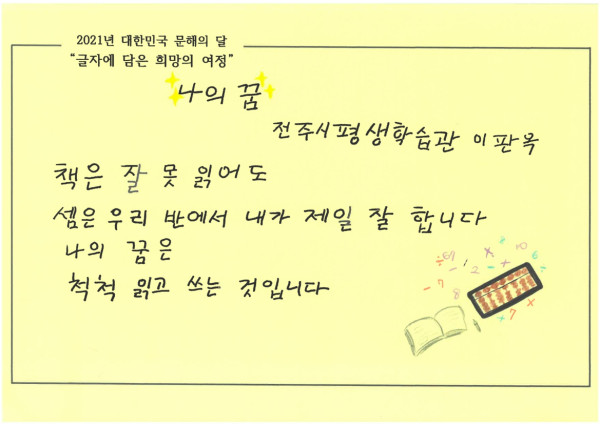 2021년 대한민국 문해의 달
“글자에 담은 희망의 여정”
나의 꿈
전주시평생학습관 이판옥
책은 잘 못 읽어도
셈은 우리 반에서 내가 제일 잘 합니다
나의 꿈은
척척 읽고 쓰는 것입니다
÷ 6 1 × 2 10 6 7
- 2 - +
- 7 8
+ 7 ×